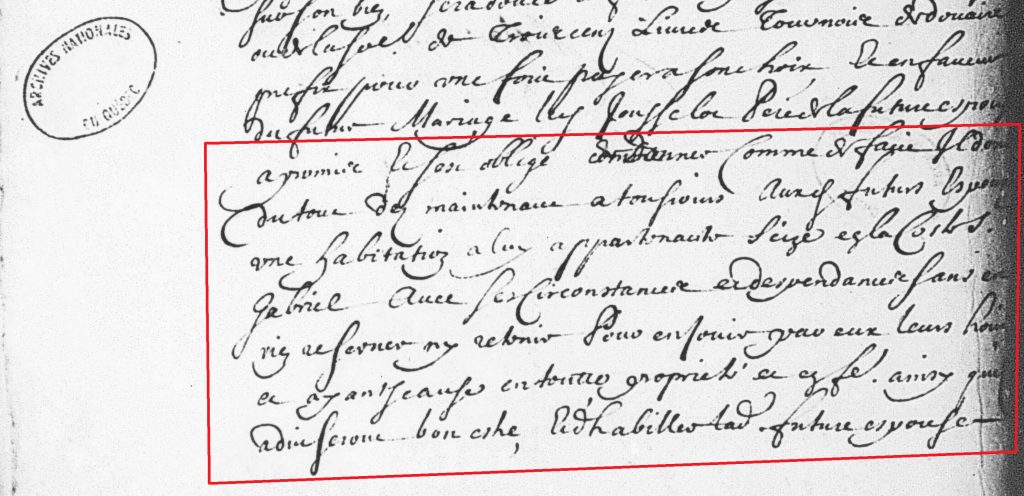 ARCHIVES NATIONALES
DU QUÉBEC
sur son bien, sera doüée
ou de la so.e de Trois cens Livres Tournois de douaire
prefix pour une fois payer a son choix, Et en faveur
du futur Mariage led Jousselot Pere de la future espou
a promis Et sest obligé donner Comme de faict Il don
du tout dez maintenant a tousjours Ausd futurs Espou
une habitation a luy appartenante scize en la Coste S.
Gabriel Avec ses Circonstances et despendances sans en
rien reserver ny retenir Pour en Jouir par eux leurs hoirs
et ayans cause en toutte proprieté et en fe. ainsy que
adviseront bon estre, Et dhabiller lad. future espouse